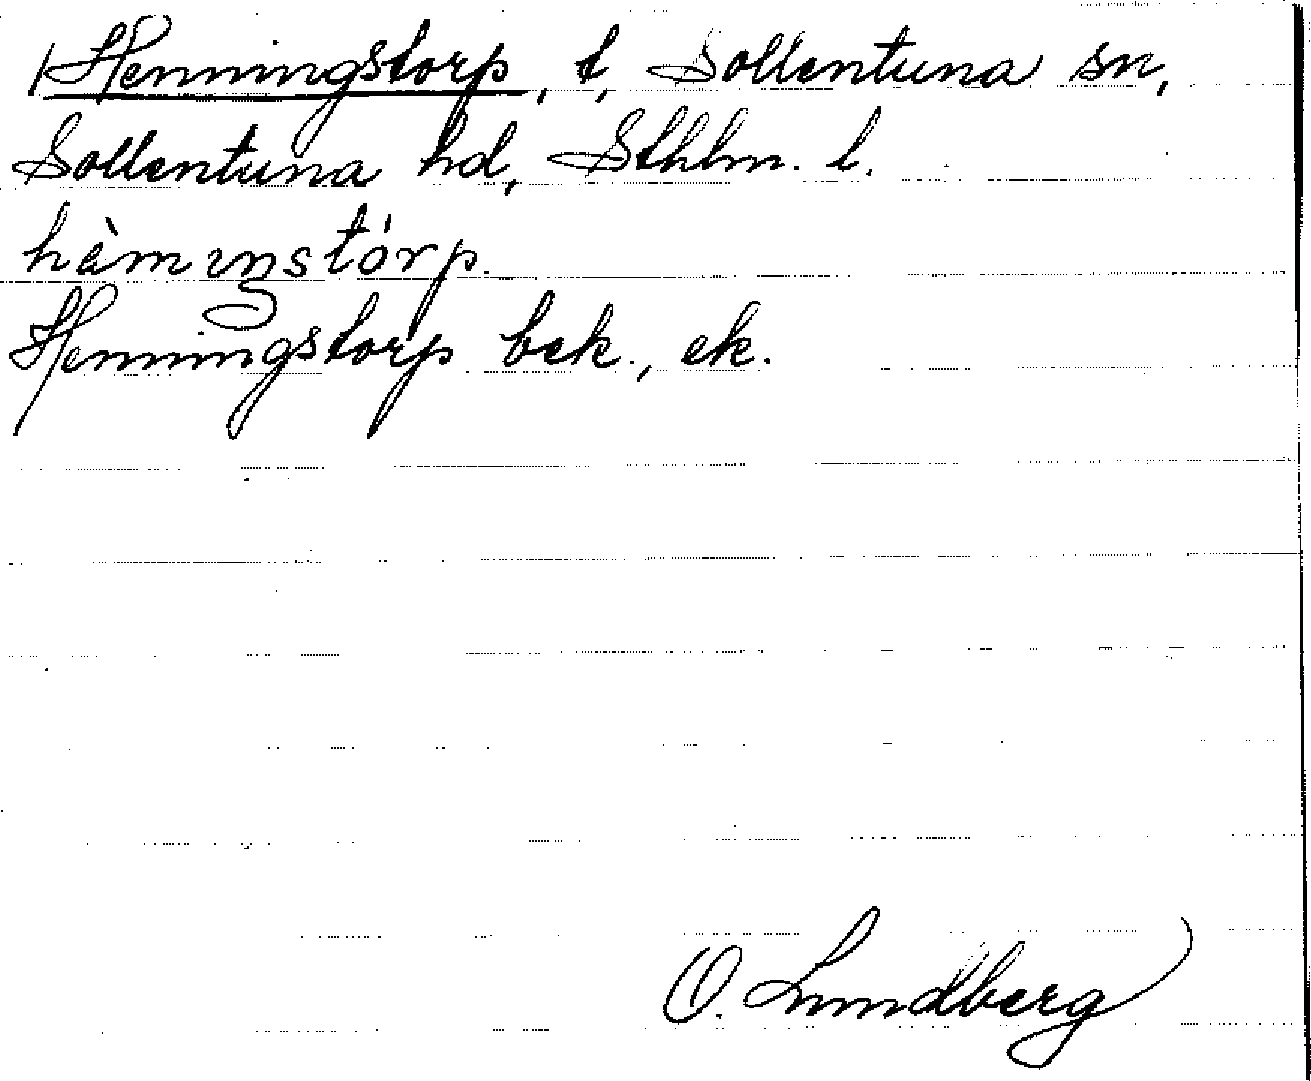 Henningstorp, t, Sollentuna sn,
Sollentuna hd, Sthlm. l.
hàmıŋstó̀rp.
Henningstorp bek., ek.
O. Lundberg